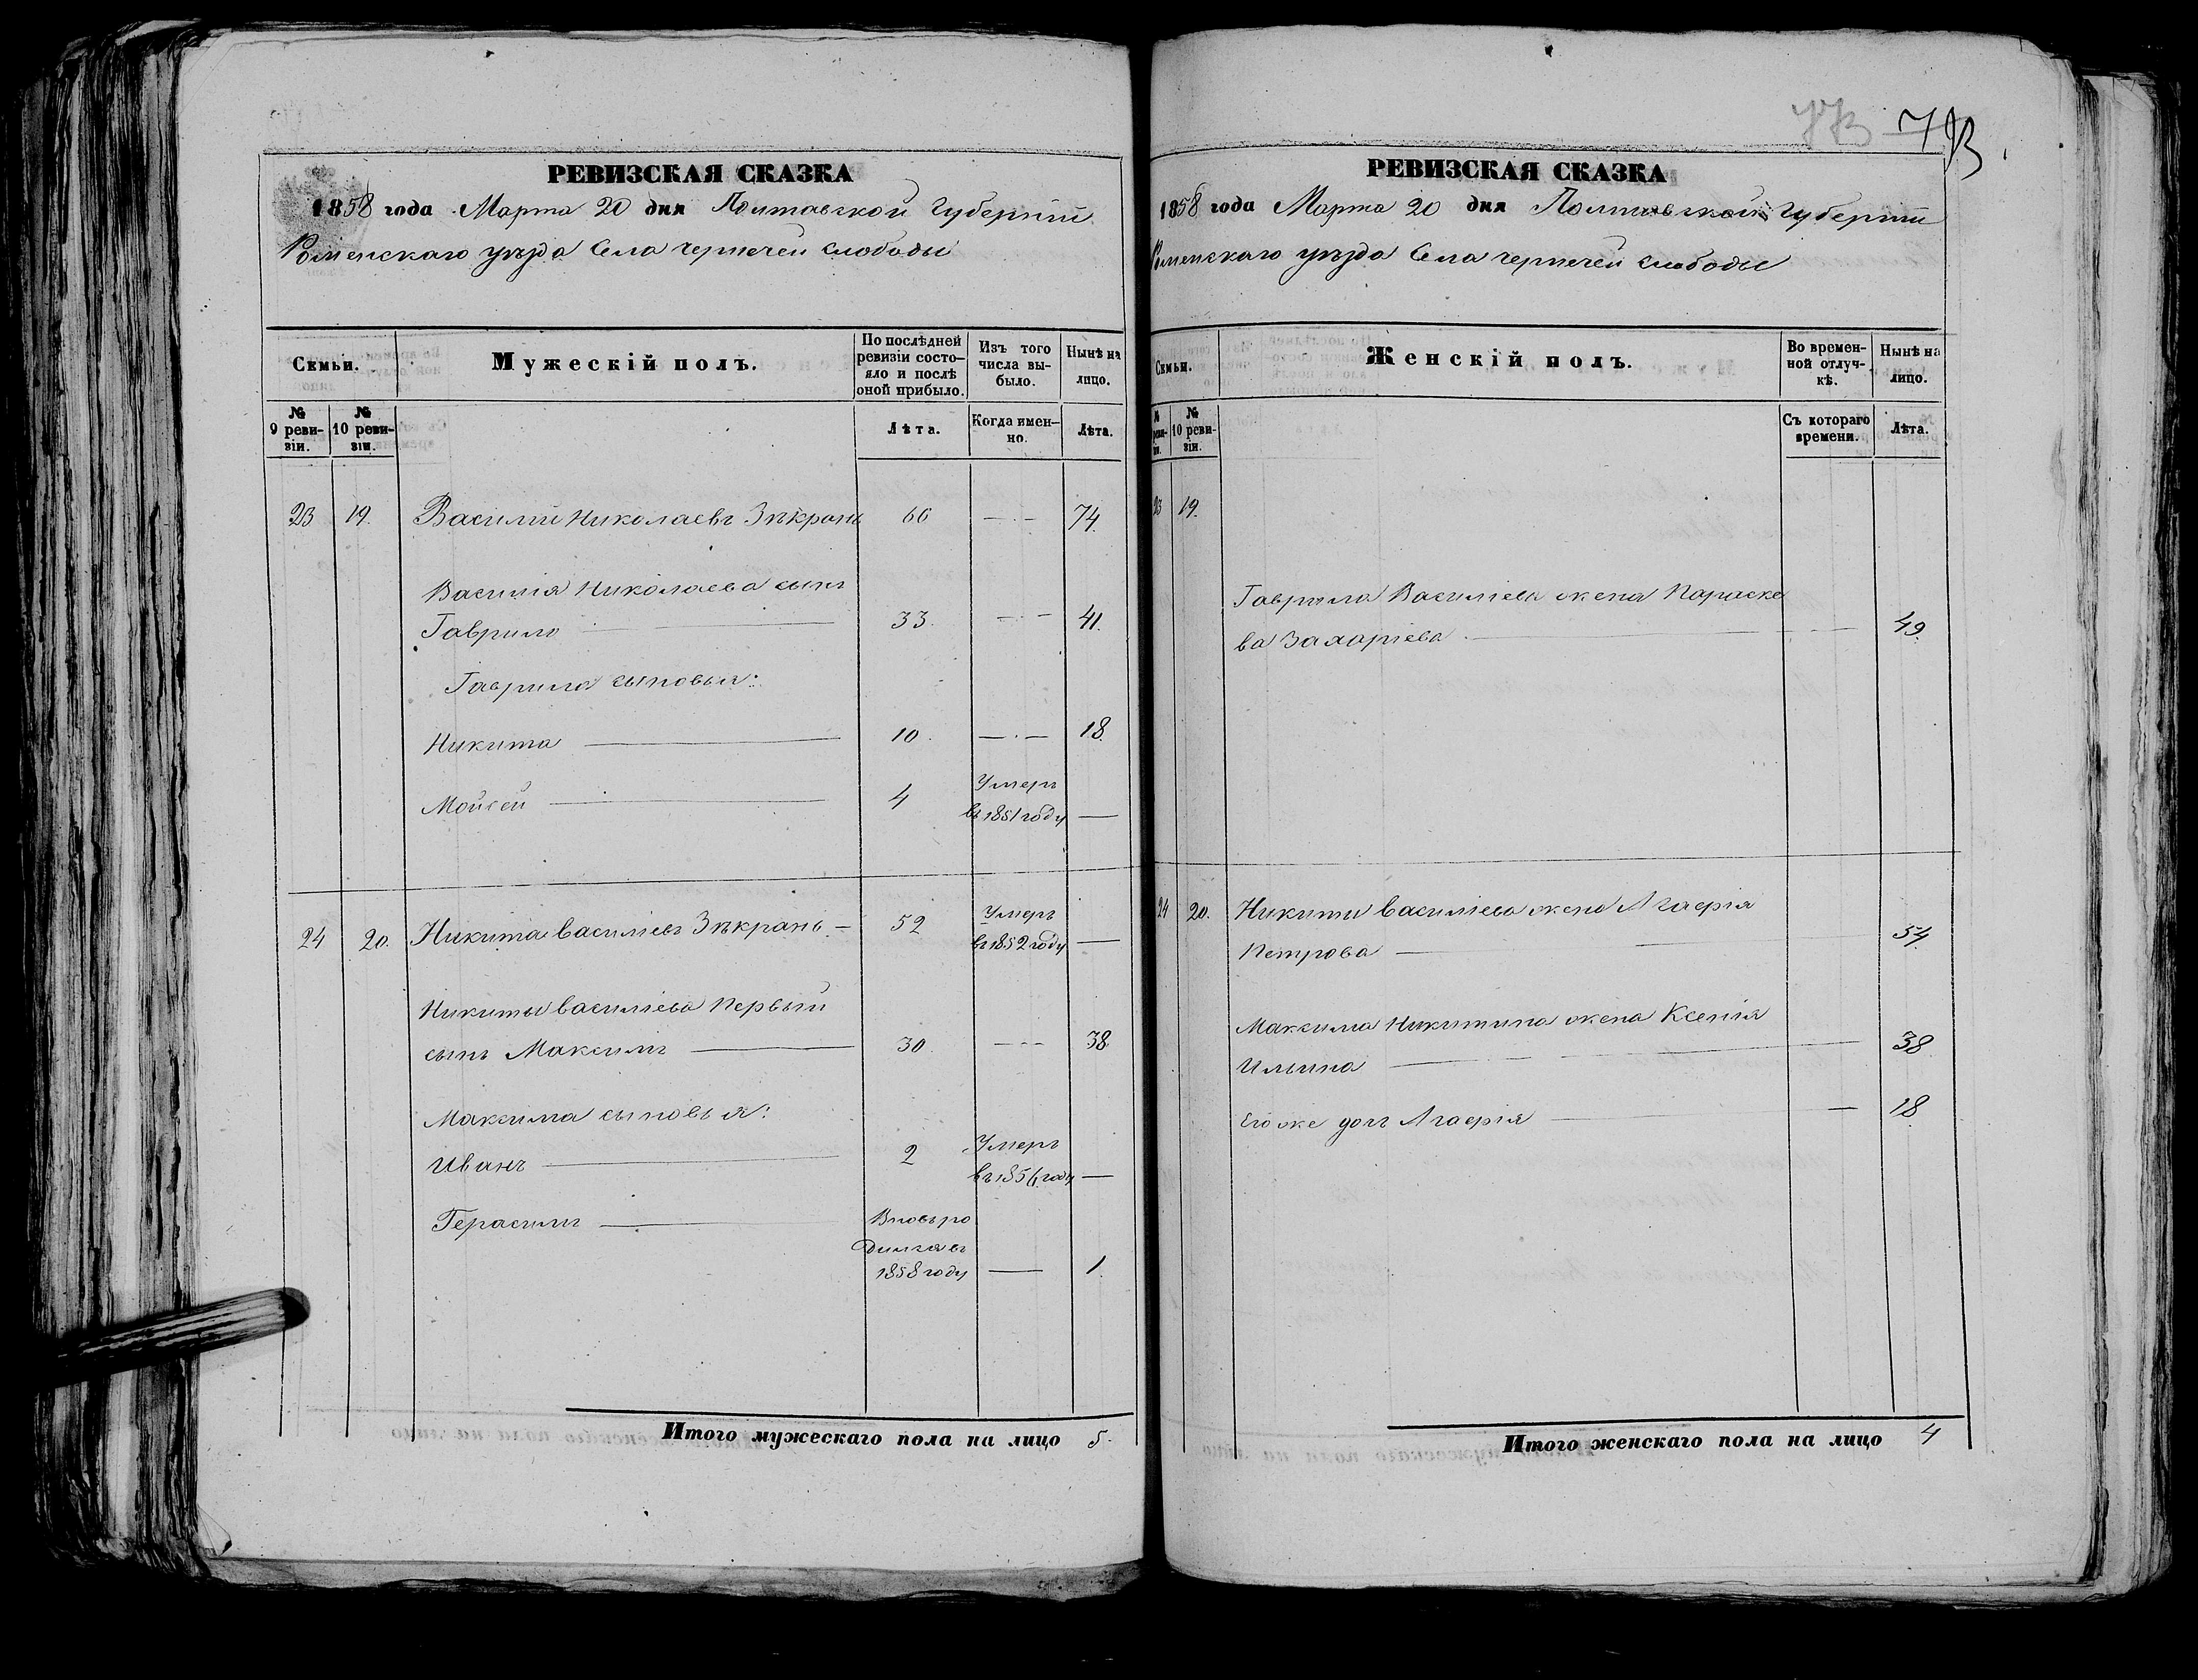 793
РЕВИЗСКАЯ СКАЗКА
1858 года Марта 20 дня Полтавской Губерніи
Роменскаго уѣзда Села чернечей слободы
Семьи.
Мужескій полъ.
По послѣдней ревизіи состояло и послѣ оной прибыло.
Изъ того числа выбыло.
Нынѣ на лицо.
№ 9 ревизіи.
№ 10 ревизіи.
Лѣта.
Когда именно.
Лѣта.
23 19. Василій Николаевъ Зѣкрань 66 — 74.
Василія Николаева сынъ
Гаврило — 33. — 41.
Гаврила сыновья:
Никита — 10. — 18.
Мойсей — 4 Умеръ
въ 1851 году —
24 20. Никита васильевъ Зѣкрань — 52 Умеръ
въ 1852 году —
Никиты василіева Первый
сынъ Максимъ — 30. — 38
Максима сыновья:
Иванъ — 2 Умеръ
въ 1856 году —
Герасимъ — Вновь ро
дился въ
1858 году — 1.
Итого мужескаго пола на лицо 5.
РЕВИЗСКАЯ СКАЗКА
1858 года Марта 20 дня Полтавской Губерніи
Роменскаго уѣзда Села чернечей слободы
Семьи.
Женскій полъ.
Во временной отлучкѣ.
Нынѣ на лицо.
№ ревизіи.
№ 10 ревизіи.
Съ котораго времени.
Лѣта.
23 19.
Гаврила Василіева жена Параске
ва Захаріева — 49.
24 20. Никиты василіева жена Агафія
Петрова — 54.
Максима Никитина жена Ксенія
Ильина — 38
Его же дочь Агафія — 18.
Итого женскаго пола на лицо 4